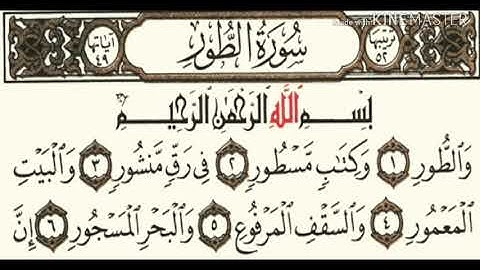 Made with KINEMASTER
ترتيبها ٥٢ سُورَةُ الطُّورِ آياتها ٤٩
بِسْمِ اللَّهِ الرَّحْمَٰنِ الرَّحِيمِ
وَالطُّورِ ١ وَكِتَابٍ مَّسْطُورٍ ٢ فِي رَقٍّ مَّنشُورٍ ٣ وَالْبَيْتِ
الْمَعْمُورِ ٤ وَالسَّقْفِ الْمَرْفُوعِ ٥ وَالْبَحْرِ الْمَسْجُورِ ٦ إِنَّ